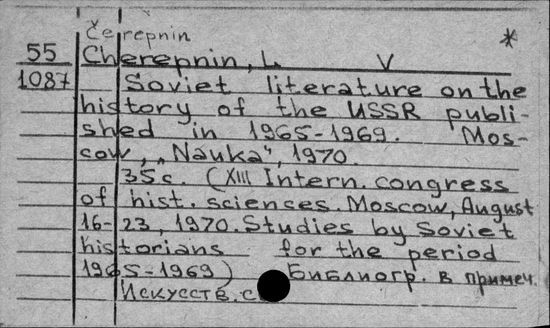 Čerepnin
*
55 Cherepnin, L. V
1087 Soviet literature on the
history of the USSR publi-
shed in 1965-1969. Mos-
cow, „Nauka", 1970.
35 c. (XIII Intern. congress
of hist. sciences. Moscow, August
16-23, 1970. Studies by Soviet
historians for the period
1965-1969) Библиогр. в примеч.
Искусств. с